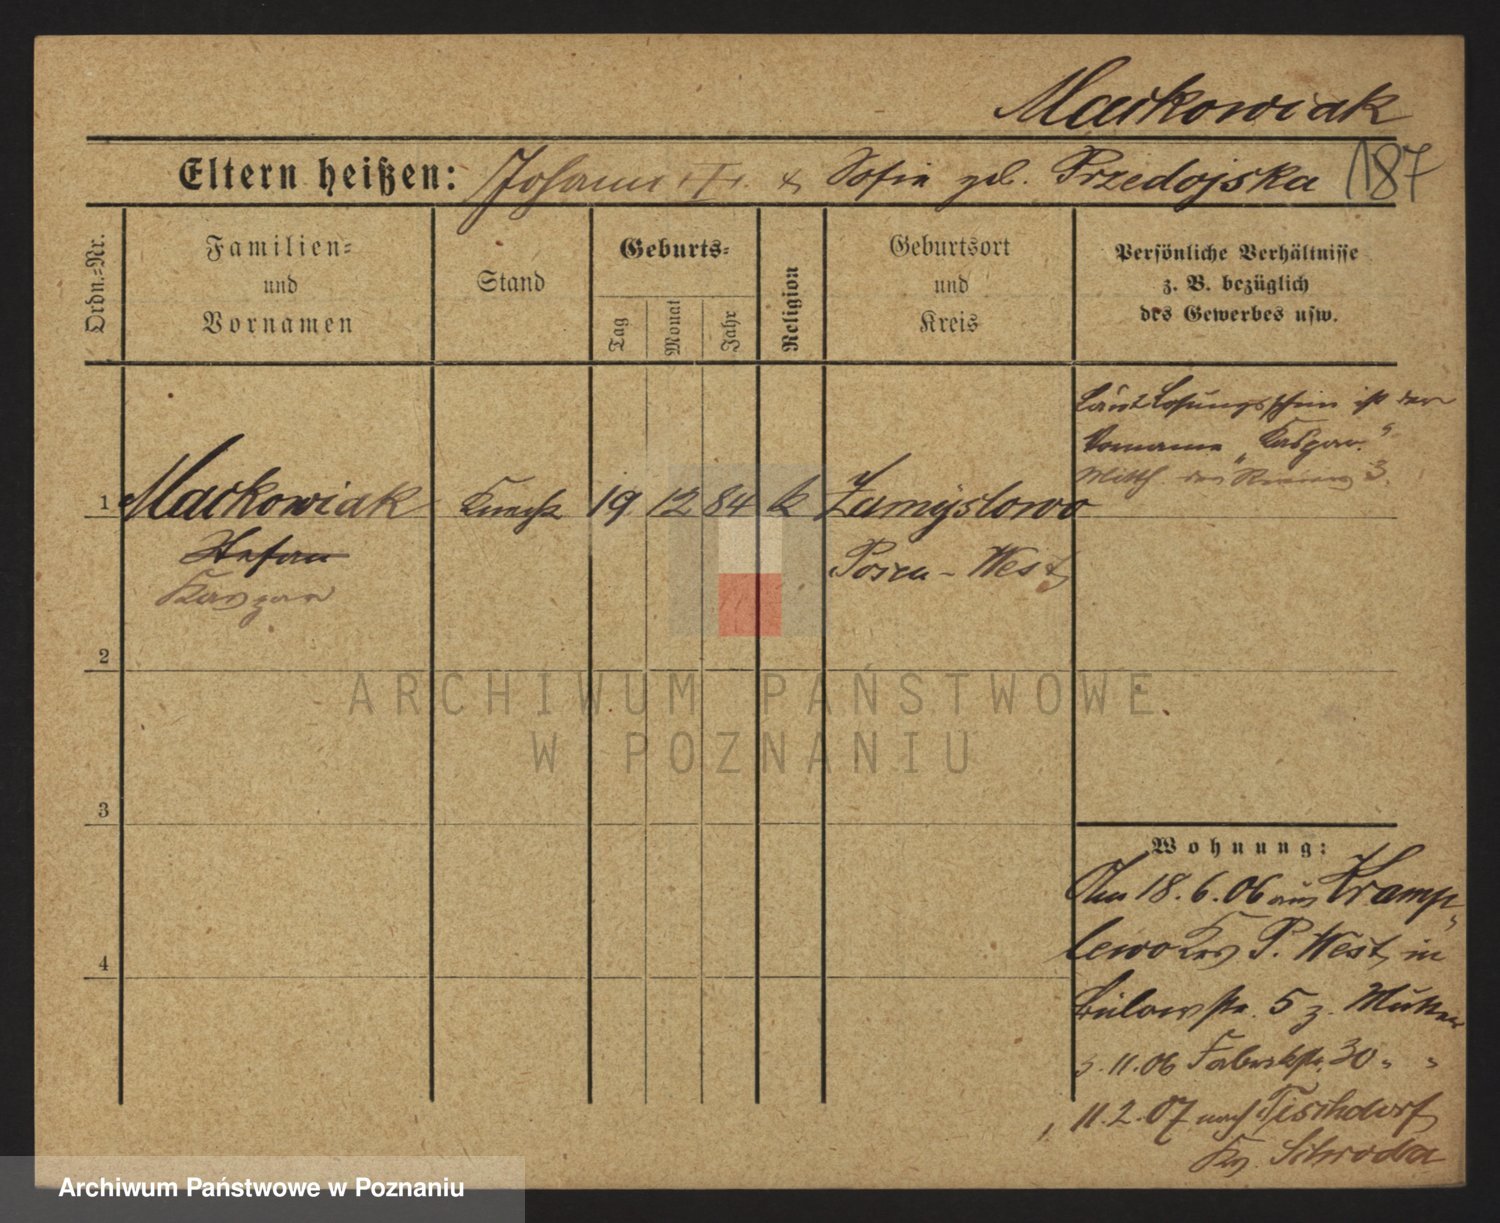 Markowiak
Eltern heißen: Johann + & Sofia geb. Przedojska 187
Ordn.-Nr.
Familien-
und
Vornamen
Stand
Geburts-
Tag
Monat
Jahr
Religion
Geburtsort
und
Kreis
Persönliche Verhältnisse
z. B. bezüglich
des Gewerbes usw.
Laut Losungsschein ist der
Vorname „Kaspar“
Mitth. des 3.
1 Markowiak Knecht 19 12 84 k Zamyslowo
Stefan Posen-West
Kaspar
2
3
4
Wohnung:
Am 18.6.06 aus Kramp-
lewo Krs P. West, in
Bülowstr. 5 z. Mutter
3.11.06 Fabrikstr. 30 " "
11.2.07 nach Tischdorf
Krs. Schroda
ARCHIWUM PAŃSTWOWE
W POZNANIU
Archiwum Państwowe w Poznaniu